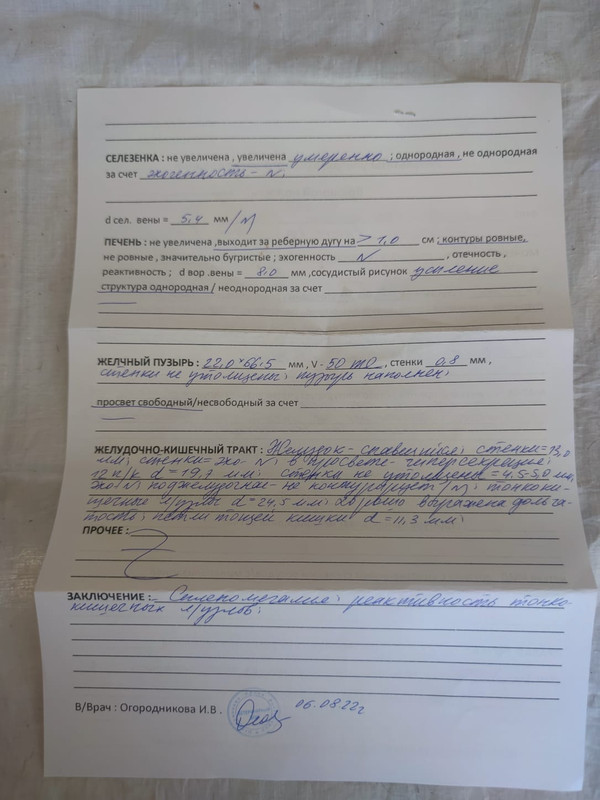 СЕЛЕЗЕНКА : не увеличена , увеличена умеренно ; однородная , не однородная
за счет эхогенность - N;
d сел. вены = 5,4 мм /N
ПЕЧЕНЬ : не увеличена ,выходит за реберную дугу на > 1,0 см ; контуры ровные,
не ровные , значительно бугристые ; эхогенность N , отечность ,
реактивность ; d вор .вены = 8,0 мм ,сосудистый рисунок усиление
структура однородная / неоднородная за счет
ЖЕЛЧНЫЙ ПУЗЫРЬ : 22,0*66,5 мм , V - 50 , стенки 0,8 мм ,
стенки не утолщены; пузырь наполнен;
просвет свободный/несвободный за счет
ЖЕЛУДОЧНО-КИШЕЧНЫЙ ТРАКТ : Желудок - спавшийся; стенки=13,0
мм; стенки= эхо- N; в просвете- гиперсекреция;
12 п/к d = 19,7 мм; стенки не утолщены = 4,5-5,0 мм,
эхо N; поджелудочная- не N; тонкоки-
шечные л/узлы d = 24,5 мм; хорошо выражена дольча-
тость; петли тощей кишки d = 11,3 мм;
ПРОЧЕЕ :
ЗАКЛЮЧЕНИЕ : Спленомегалия; реактивность тонко-
кишечных л/узлов;
В/Врач : Огородникова И.В .
06.08.22г